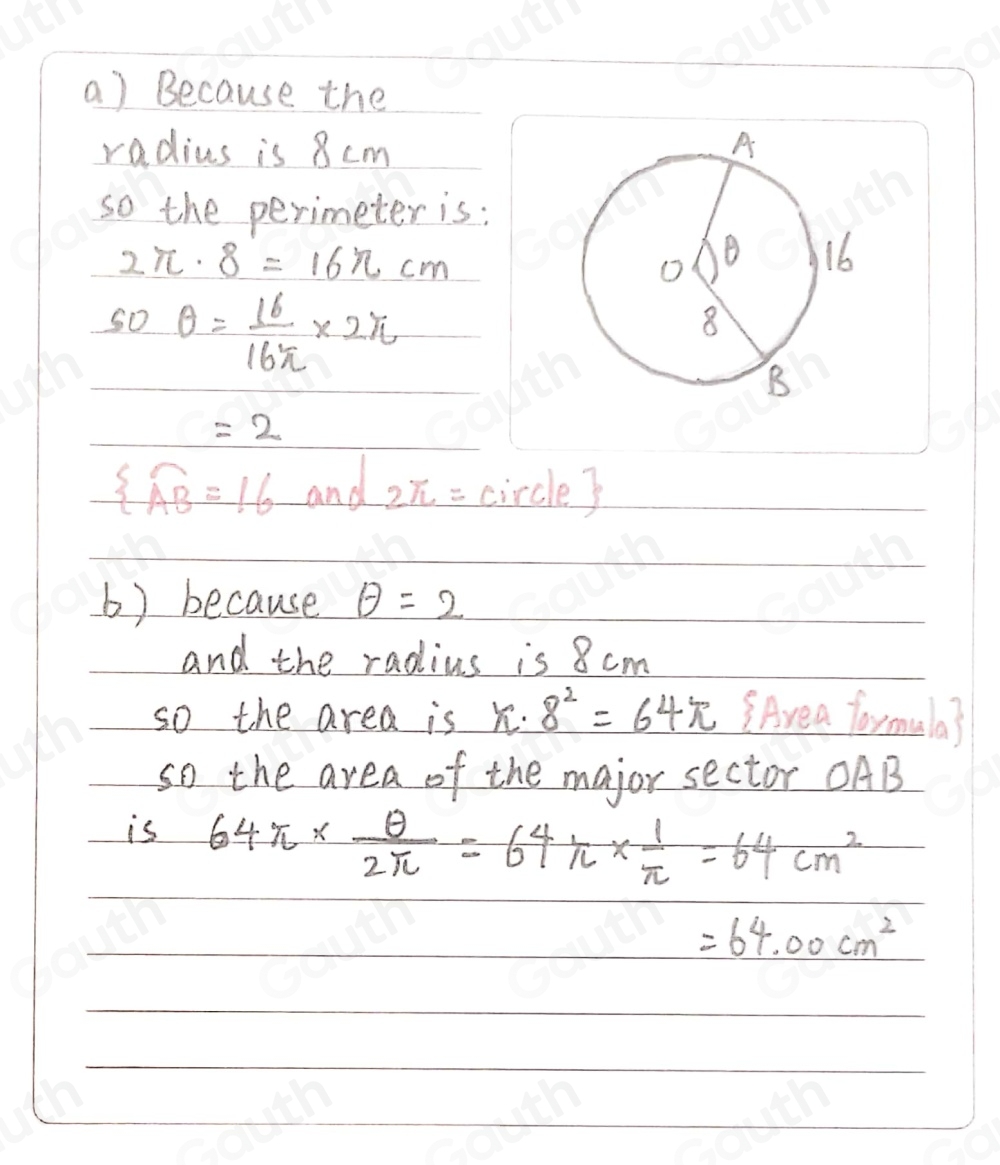 a) Because the
radius is 8 cm
so the perimeter is:
2π · 8 = 16π cm
so θ = 16/16π × 2π
= 2
{A͡B = 16 and 2π = circle}
A
O
θ
16
8
B
b) because θ = 2
and the radius is 8 cm
so the area is π · 8² = 64π {Area formula}
so the area of the major sector OAB
is 64π × θ/2π = 64π × 1/π = 64 cm²
= 64.00 cm²
Gauth